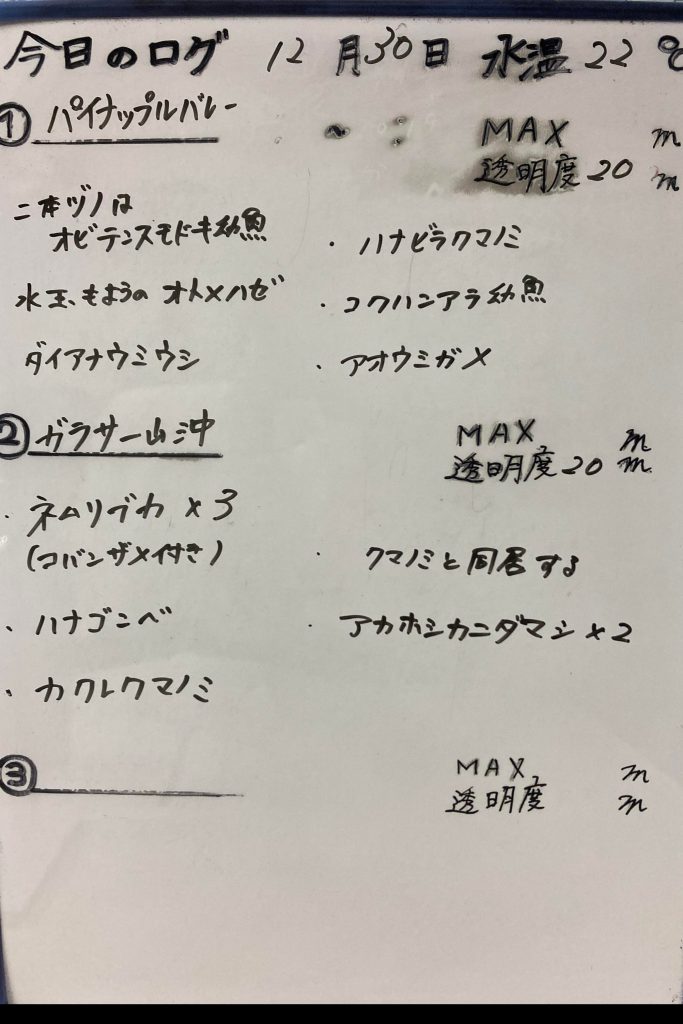 今日のログ 12月30日 水温22℃
① パイナップルバレー
MAX m
透明度20 m
二本ヅノは
オビテンスモドキ幼魚
・ハナビラクマノミ
水玉もようの オトメハゼ
・コクハンアラ幼魚
ダイアナウミウシ
・アオウミガメ
② ガラサー山沖
MAX m
透明度20 m
・ネムリブカ×3
(コバンザメ付き)
・クマノミと同居する
・ハナゴンベ
・アカホシカニダマシ×2
・カクレクマノミ
③
MAX m
透明度 m